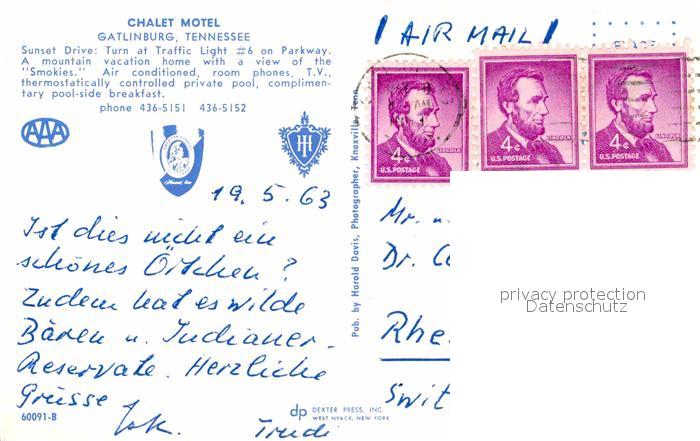 CHALET MOTEL
GATLINBURG, TENNESSEE
Sunset Drive: Turn at Traffic Light #6 on Parkway.
A mountain vacation home with a view of the
"Smokies." Air conditioned, room phones, T.V.,
thermostatically controlled private pool, complimen-
tary pool-side breakfast.
phone 436-5151 436-5152
AAA
19.5.63
Ist dies nicht ein
schönes Örtchen?
Zudem hat es wilde
Bären u. Indianer-
Reservate. Herzliche
Grüsse
Trudi
60091-B
dp DEXTER PRESS, INC.
WEST NYACK, NEW YORK
Pub. by Harold Davis, Photographer, Knoxville, Tenn.
AIR MAIL
4¢ LINCOLN
U.S. POSTAGE
4¢ LINCOLN
U.S. POSTAGE
4¢ LINCOLN
U.S. POSTAGE
Mr. u.
Dr.
Rhe
Swit
privacy protection
Datenschutz